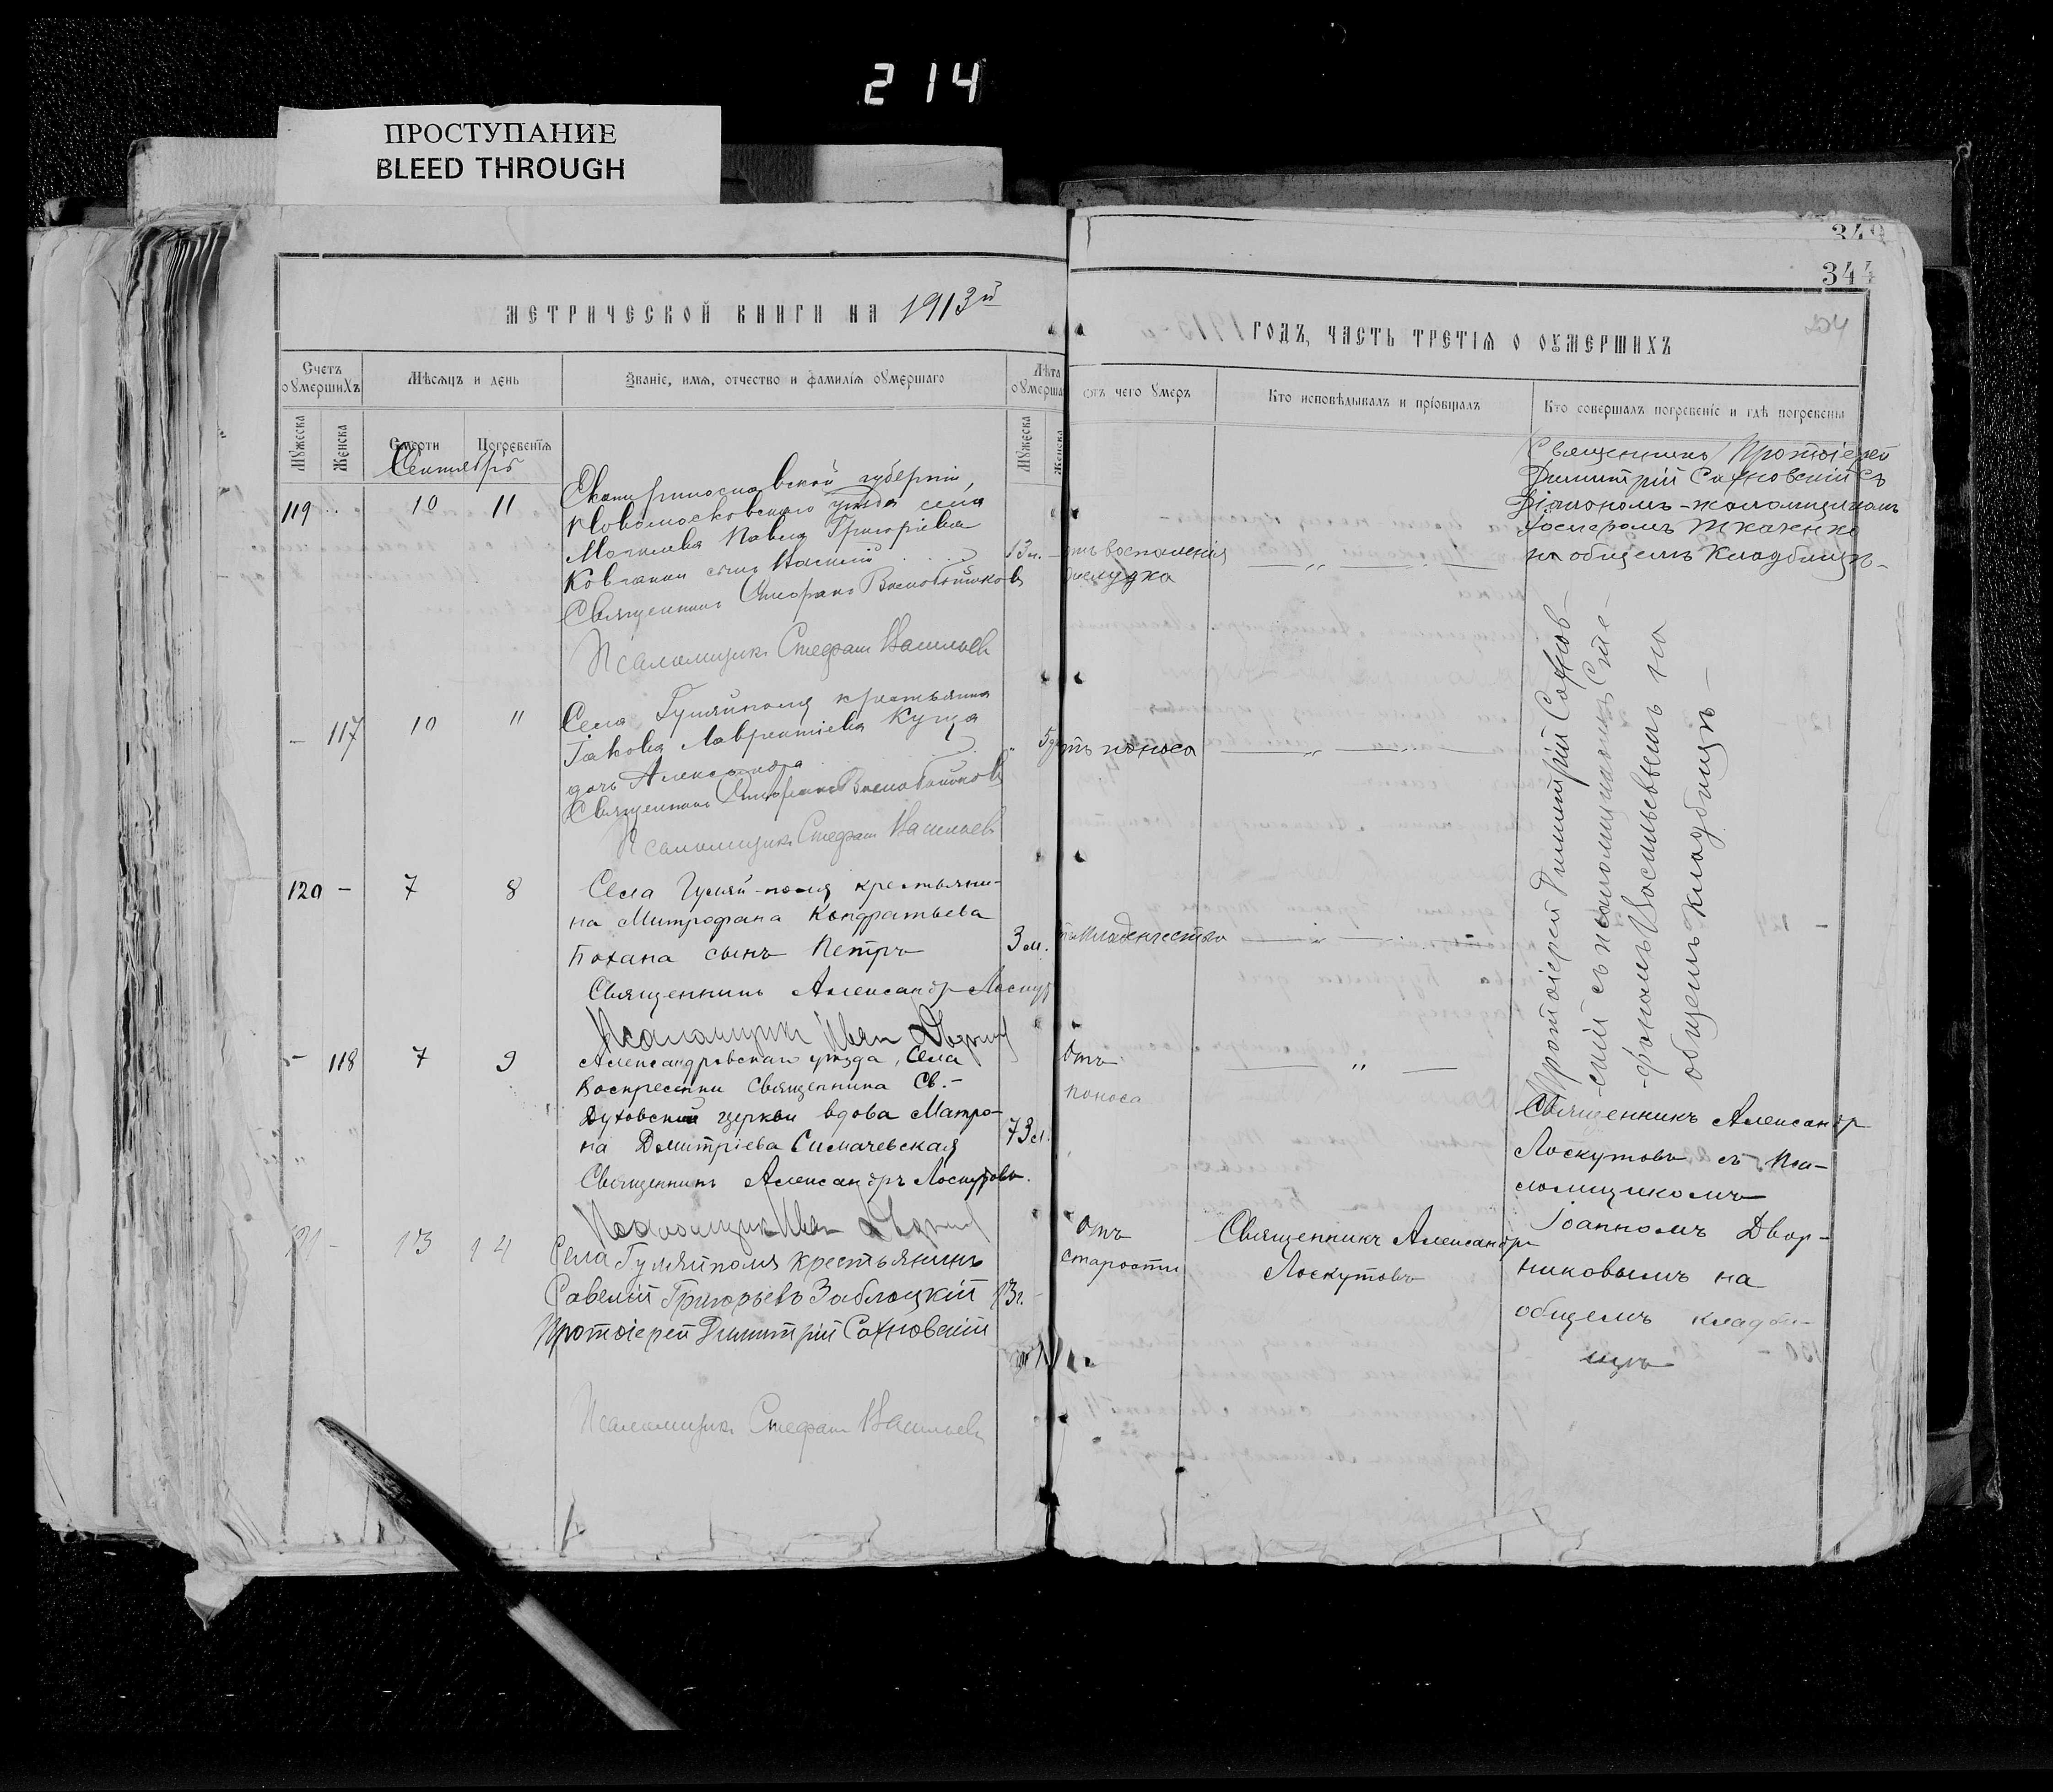 214
ПРОСТУПАНИЕ
BLEED THROUGH
349
344
МЕТРИЧЕСКОЙ КНИГИ НА 1913й
ГОДЪ, ЧАСТЬ ТРЕТІЯ О ОУМЕРШИХЪ
Счетъ оумершихъ
Мѣсяцъ и день
Званіе, имя, отчество и фамилія оумершаго
Лѣта оумерша
отъ чего умеръ
Кто исповѣдывалъ и пріобщалъ
Кто совершалъ погребеніе и гдѣ погребены
Мужеска
Женска
Смерти
Погребенія
Мужеска
Женска
Сентябрь
119 10 11
Екатеринославской губерніи,
Новомосковскаго уѣзда села
Павла Григоріева
сынъ Василій
13 м.
отъ воспаленія
желудка
Священникъ Протоіерей
Димитрій Сахновскій съ
Діакономъ-псаломщикомъ
Ткаченко
на общемъ кладбищѣ-
Священникъ
Псаломщикъ Стефанъ Васильевъ
— 117 10 11
Села Гуляйполя крестьянина
Іакова Лаврентіева Куща
дочь Александра
отъ поноса
Священникъ
Псаломщикъ Стефанъ Васильевъ
Протоіерей Димитрій Сахнов-
-скій съ псаломщикомъ Сте-
-фаномъ Васильевымъ на
общемъ кладбищѣ-
120 — 7 8
Села Гуляй-поля крестьяни-
на Митрофана Кондратьева
Бохана сынъ Петръ
3 м.
отъ младенчества
Священникъ Александръ Лоскут
Псаломщикъ Иван
— 118 7 9
Александровскаго уѣзда, Села
Воскресенки Священника Св.-
Духовской церкви вдова Матро-
на Димитріева Симачевская
73
Отъ
поноса
Священникъ Александръ Лоскутовъ.
Псаломщикъ Иван
Священникъ Александръ
Лоскутовъ съ Пса-
ломщикомъ
Іоанномъ Двор-
никовымъ на
общемъ кладби-
щѣ
121 — 13 14
Села Гуляйполя крестьянинъ
Савелій Григорьевъ Заблоцкій
Отъ
старости
Священникъ Александръ
Лоскутовъ
Протоіерей Димитрій Сахновскій
Псаломщикъ Стефанъ Васильевъ